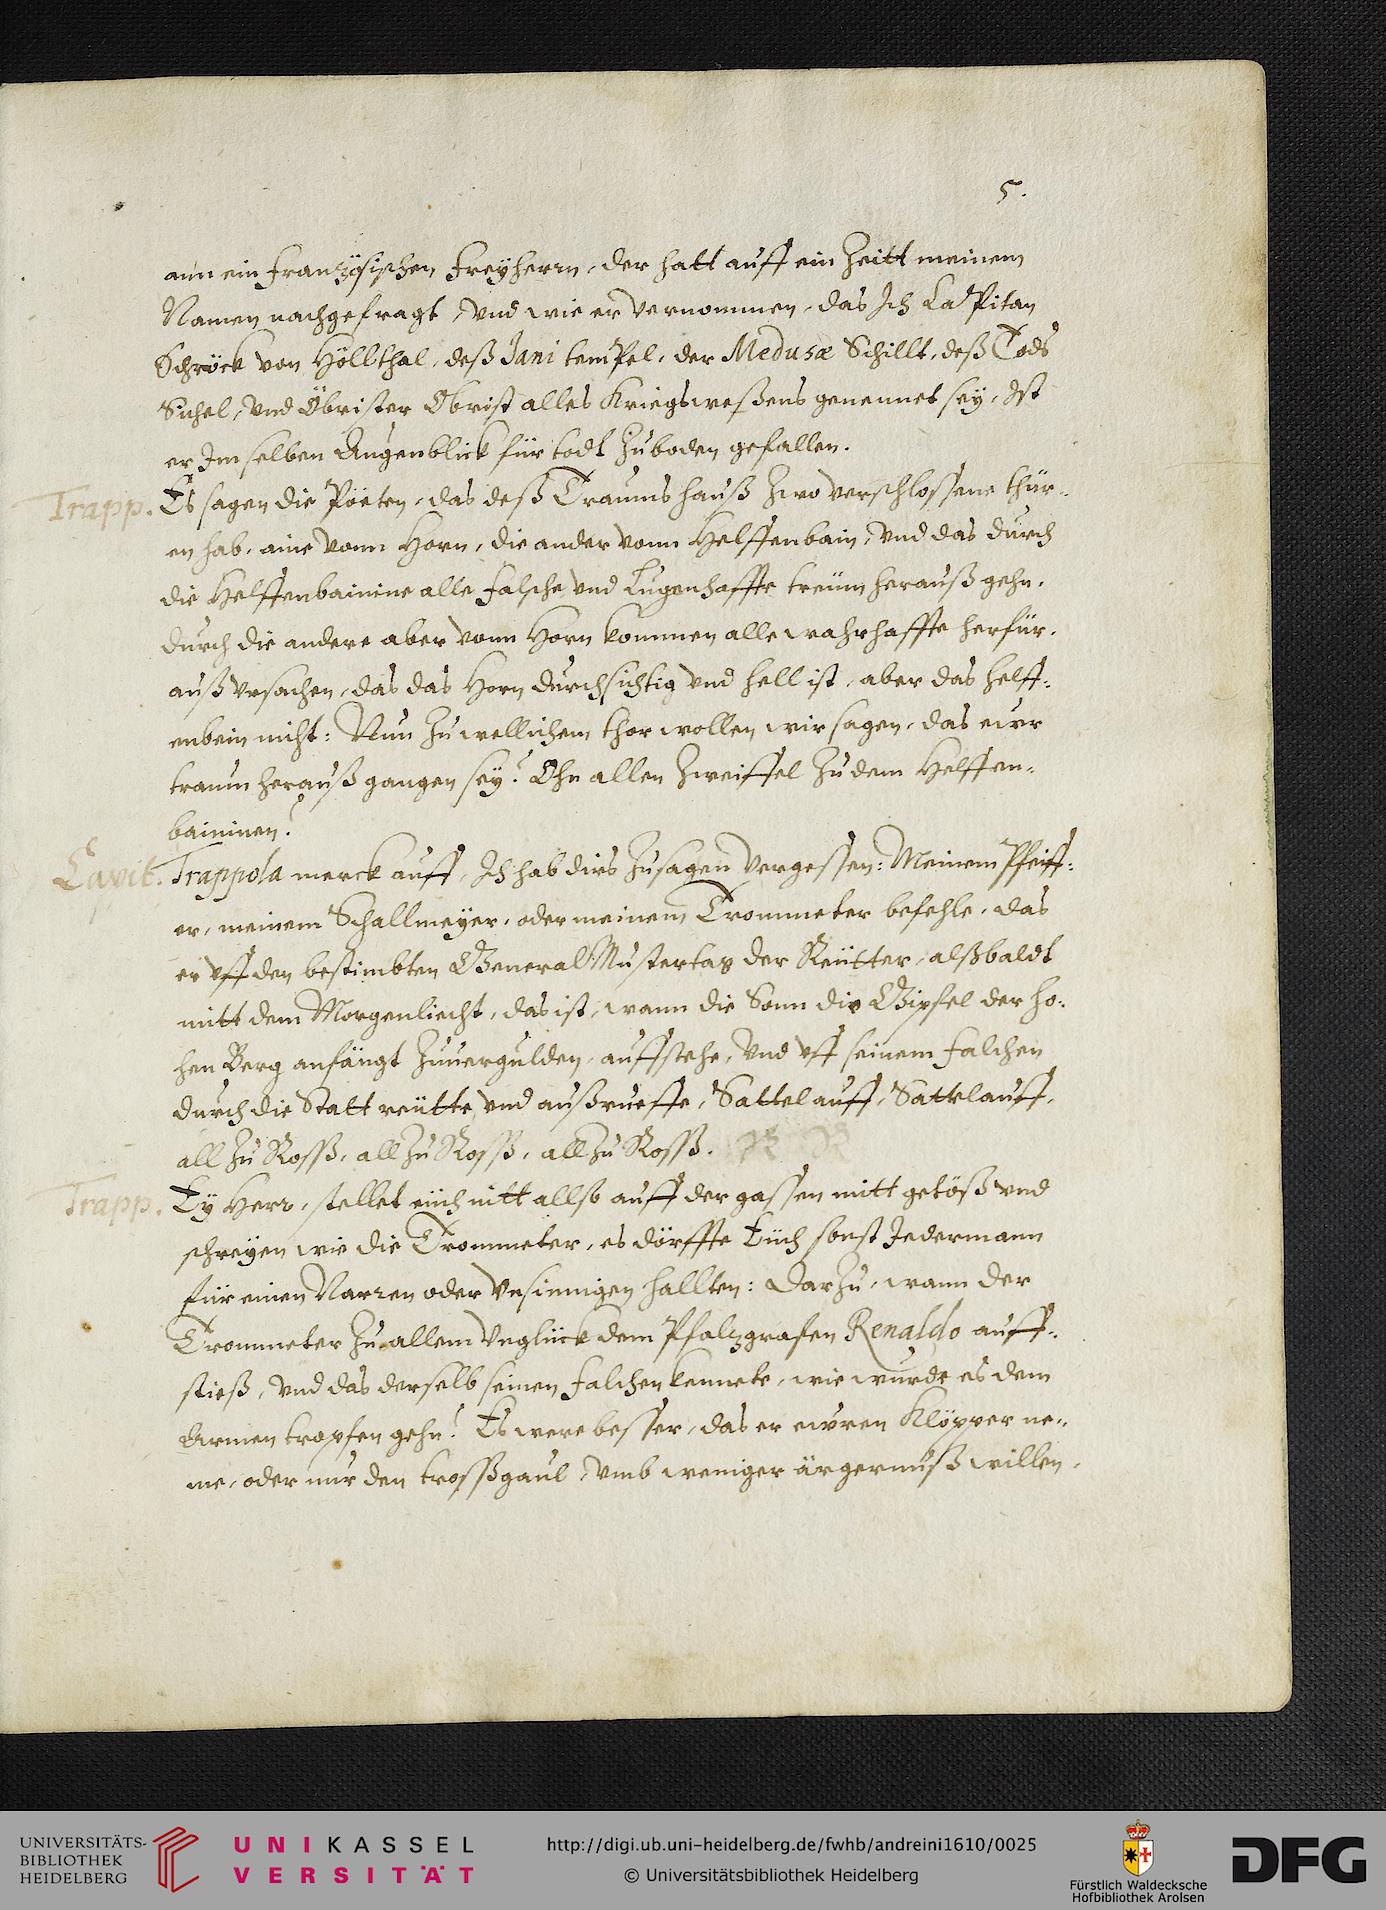 5.
ann ein Französischen Freyherrn, der hatt auff ein Zeitt meinem
Namen nachgefragt, vnd wie er vernommen, das Ich CaPitan
Schröck von Höllthal, deß Jani tempel, der Medusæ Schillt, deß Tods
Sichel, vnd Öbrister Obrist alles Kriegsweßens genennet sey, Ist
er Im selben Augenblick für todt zu boden gefallen.
Trapp. Es sagen die Pöeten, das deß Traums hauß zwo verschlossene thür-
en hab, aine vonn Horn, die ander vonn Helffenbain, vnd das durch
die Helffenbainine alle falsche vnd Lugenhaffte treüm herauß gehn,
durch die andere aber vonn Horn kommen alle wahrhaffte herfür,
auß vrsachen, das das Horn durchsichtig vnd hell ist, aber das helff-
enbein nicht: Nun zu wellichem thor wollen wir sagen, das ewr
traum herauß gangen sey? Ohn allen Zweiffel zu dem Helffen-
baininen?
Capit. Trappola merck auff, Ich hab dirs zusagen vergessen: Meinem Pfeiff-
er, meinem Schallmeyer, oder meinem Trommeter befehle, das
er vff den bestimbten General Mustertag der Reütter, alßbaldt
mitt dem Morgenliecht, das ist, wann die Sonn die Gipfel der ho-
hen Berg anfängt zuuergulden, auffstehe, vnd vff seinem falchen
durch die Statt reütte, vnd außrueffe, Sattel auff, Sattel auff,
all zu Rosß, all zu Rosß, all zu Rosß.
Trapp. Ey Herr, stellet eüch nitt allso auff der gassen mitt getöß vnd
schreyen wie die Trommeter, es dörffte Eüch sonst Jedermann
für einen Narren oder vnsinnigen hallten: Darzu, wann der
Trommeter zu allem vnglück dem Pfalzgrafen Renaldo auff-
stieß, vnd das derselb seinen falchen kennete, wie wurde es dem
Armen tropfen gehn? Es were besser, das er ewren Klöpper ne-
me, oder nur den trosßgaul, vmb weniger ärgernuß willen,
UNIVERSITÄTS-
BIBLIOTHEK
HEIDELBERG
UNIKASSEL
VERSITÄT
http://digi.ub.uni-heidelberg.de/fwhb/andreini1610/0025
© Universitätsbibliothek Heidelberg
Fürstlich Waldecksche
Hofbibliothek Arolsen
DFG